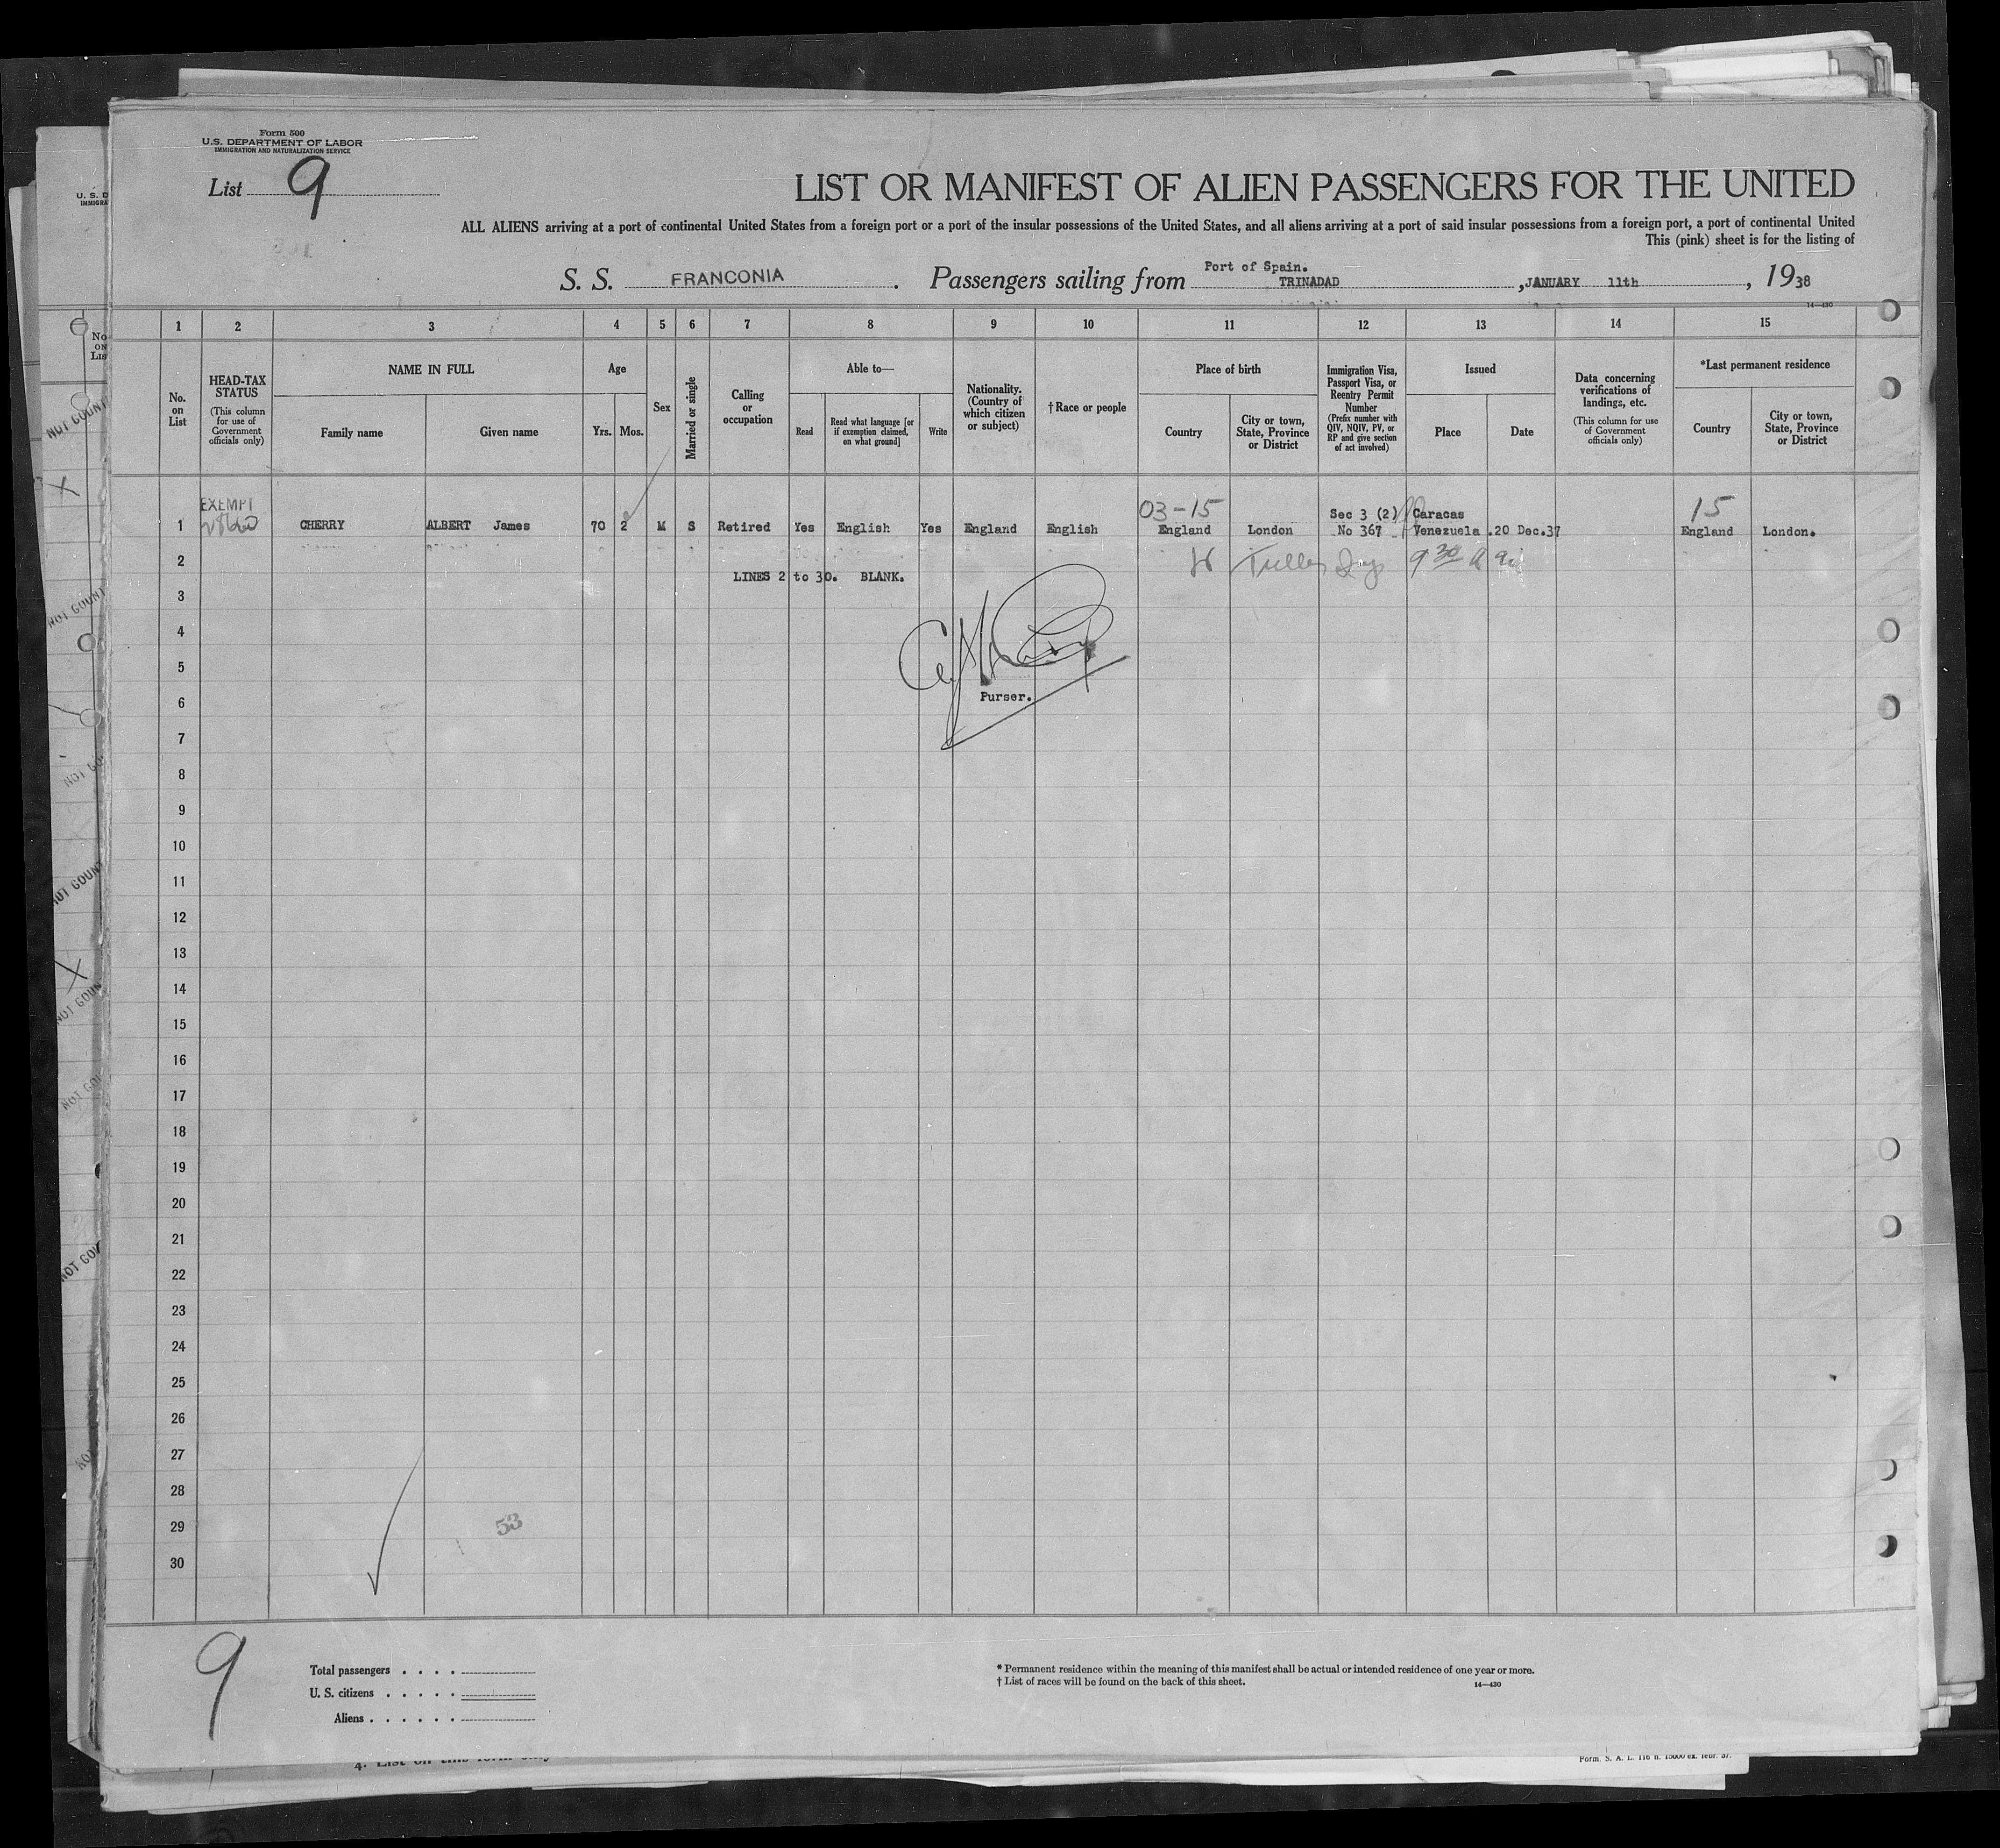 Form 500
U.S. DEPARTMENT OF LABOR
IMMIGRATION AND NATURALIZATION SERVICE
List 9
LIST OR MANIFEST OF ALIEN PASSENGERS FOR THE UNITED
ALL ALIENS arriving at a port of continental United States from a foreign port or a port of the insular possessions of the United States, and all aliens arriving at a port of said insular possessions from a foreign port, a port of continental United
This (pink) sheet is for the listing of
S. S. FRANCONIA. Passengers sailing from Port of Spain. TRINADAD, JANUARY 11th, 1938
14—430
1 2 3 4 5 6 7 8 9 10 11 12 13 14 15
No. on List
HEAD-TAX STATUS
(This column for use of Government officials only)
NAME IN FULL
Family name
Given name
Age
Yrs.
Mos.
Sex
Married or single
Calling or occupation
Able to—
Read
Read what language [or if exemption claimed, on what ground]
Write
Nationality. (Country of which citizen or subject)
† Race or people
Place of birth
Country
City or town, State, Province or District
Immigration Visa, Passport Visa, or Reentry Permit Number
(Prefix number with QIV, NQIV, PV, or RP and give section of act involved)
Issued
Place
Date
Data concerning verifications of landings, etc.
(This column for use of Government officials only)
*Last permanent residence
Country
City or town, State, Province or District
EXEMPT 03-15 Sec 3 (2) Caracas 15
1 CHERRY ALBERT James 70 2 M S Retired Yes English Yes England English England London No 367 Venezuela .20 Dec.37 England London.
2
LINES 2 to 30. BLANK.
3
4
5
6
Purser.
7
8
9
10
11
12
13
14
15
16
17
18
19
20
21
22
23
24
25
26
27
28
29
53
30
9
Total passengers
U. S. citizens
Aliens
* Permanent residence within the meaning of this manifest shall be actual or intended residence of one year or more.
† List of races will be found on the back of this sheet.
14—430